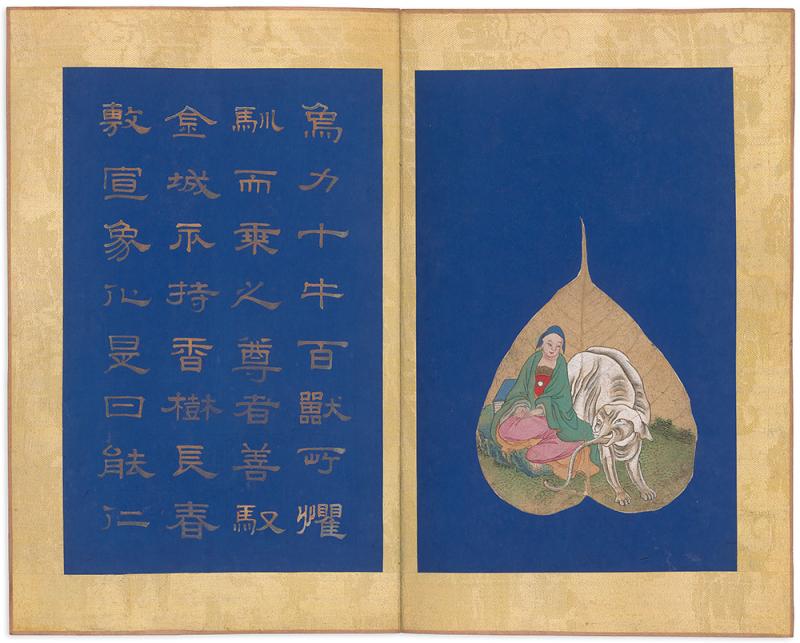 為力十牛百獸所懼
馴而乘之尊者善馭
金城示持香樹長春
敷宣象化是曰能仁